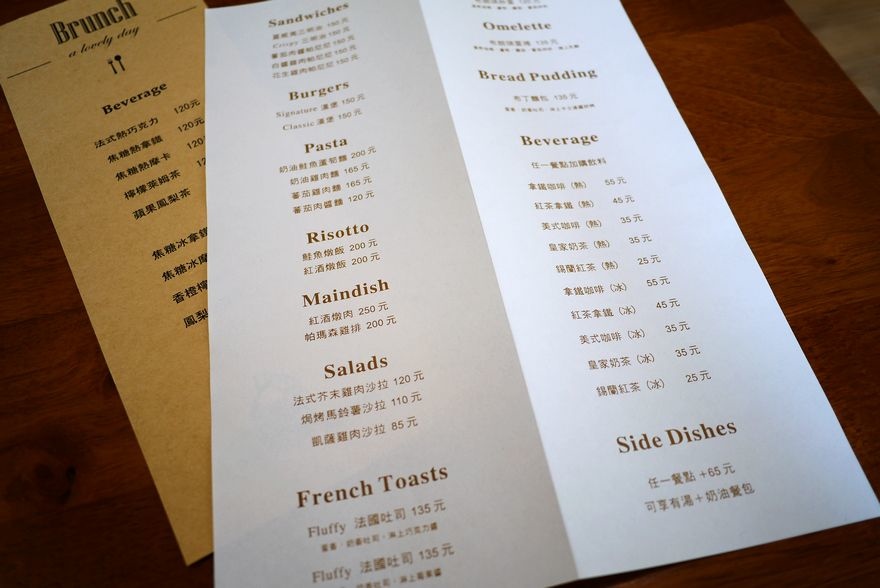 Brunch
a lovely day
Beverage
法式熱巧克力 120元
焦糖熱拿鐵 120元
焦糖熱摩卡
檸檬萊姆茶
蘋果鳳梨茶
焦糖冰拿鐵
焦糖冰摩
香橙檸
鳳梨
Sandwiches
夏威夷三明治 150元
Crispy 三明治 150元
蕃茄肉醬帕尼尼 150元
白醬雞肉帕尼尼 150元
花生雞肉帕尼尼 150元
Burgers
Signature 漢堡 150元
Classic 漢堡 150元
Pasta
奶油鮭魚蘆筍麵 200元
奶油雞肉麵 165元
蕃茄雞肉麵 165元
蕃茄肉醬麵 120元
Risotto
鮭魚燉飯 200元
紅酒燉飯 200元
Maindish
紅酒燉肉 250元
帕瑪森雞排 200元
Salads
法式芥末雞肉沙拉 120元
焗烤馬鈴薯沙拉 110元
凱薩雞肉沙拉 85元
French Toasts
Fluffy 法國吐司 135元
蛋香，奶香吐司，淋上巧克力醬
Fluffy 法國吐司 135元
蛋香，奶香吐司，淋上莓果醬
Omelette
120元
Bread Pudding
布丁麵包 135元
Beverage
任一餐點加購飲料
拿鐵咖啡（熱） 55元
紅茶拿鐵（熱） 45元
美式咖啡（熱） 35元
皇家奶茶（熱） 35元
錫蘭紅茶（熱） 25元
拿鐵咖啡（冰） 55元
紅茶拿鐵（冰） 45元
美式咖啡（冰） 35元
皇家奶茶（冰） 35元
錫蘭紅茶（冰） 25元
Side Dishes
任一餐點 +65元
可享有湯+奶油餐包